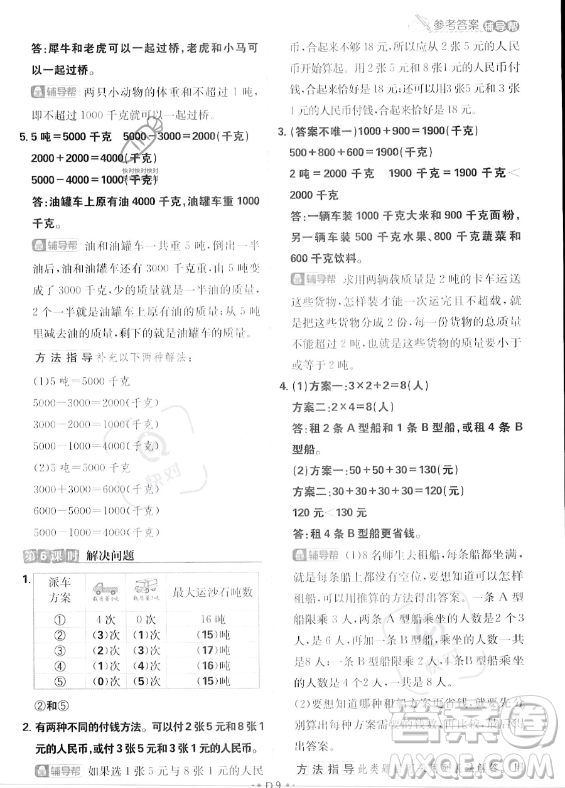 参考答案 辅导帮
答:犀牛和老虎可以一起过桥。老虎和小马可以一起过桥。
辅导帮 两只小动物的体重和不超过1吨,
即不超过1000千克可以一起过桥。
5. 5吨=5000千克 5000-3000=2000(千克)
2000+2000=4000(千克)
5000-4000=1000(千克)
答:油罐车上原有油4000千克,油罐车重1000千克。
辅导帮 油和油罐车一共重5吨,倒出一半
油后,一半油和油罐车共重3000千克,由此可以从
5吨中减去3吨,少的质量就是一半油的质量,
2个一半就是油罐车上原有油的质量,再从5吨
里减去油的质量,剩下的就是油罐车的质量。
方法指导 补充以下两种解法:
(1)5吨=5000千克
5000-3000=2000(千克)
3000-2000=1000(千克)
5000-1000=4000(千克)
(2)5吨=5000千克
3000+3000=6000(千克)
6000-5000=1000(千克)
5000-1000=4000(千克)
第6课时 解决问题
1.
派车方案 最大运沙石吨数
① 4次 0次 16吨
② (3)次 (1)次 (15)吨
③ (2)次 (3)次 (17)吨
④ (1)次 (4)次 (16)吨
⑤ (0)次 (5)次 (15)吨
②和⑤
2. 有两种不同的付钱方法。可以付2张5元和8张1
元的人民币,或付3张5元和3张1元的人民币。
辅导帮 如果选1张5元与8张1元的人民
币,合起来不够18元,所以要从2张5元的人民
币开始算起。用2张5元和8张1元的人民币付
钱,合起来恰好是18元。用3张5元和3张1元
的人民币付钱,合起来恰好是18元。
3. (答案不唯一)1000+900=1900(千克)
500+800+600=1900(千克)
2吨=2000千克 1900千克<2000千克
答:一辆车装1000千克大米和900千克面粉,
另一辆车装500千克水果、800千克蔬菜和600千克饮料。
辅导帮 求用两辆载质量是2吨的卡车运送
这些货物,怎样才能一次运完且不超载,也就是
把这些货物分成2份,每一份中货物的总质量
不能超过2吨,也就是这些货物的总质量要小于
或等于2吨。
4. (1)方案一:3×2+2=8(人)
方案二:2×4=8(人)
答:租2条A型船和1条B型船,或租4条B
型船。
(2)方案一:50+50+30=130(元)
方案二:30+30+30+30=120(元)
120元<130元
答:租4条B型船更省钱。
辅导帮 (1)8名师生去租船,每条船都坐
满,也就是每条船都没有空位,要想知道怎样
租船,可以用推算的方法得出答案。2条A型
船乘坐的人数与1条B型船乘坐的人数之和是
8人,4条B型船乘坐的人数是8人。A型船乘坐
的人数+B型船乘坐的人数=总人数。
(2)要想知道
D9